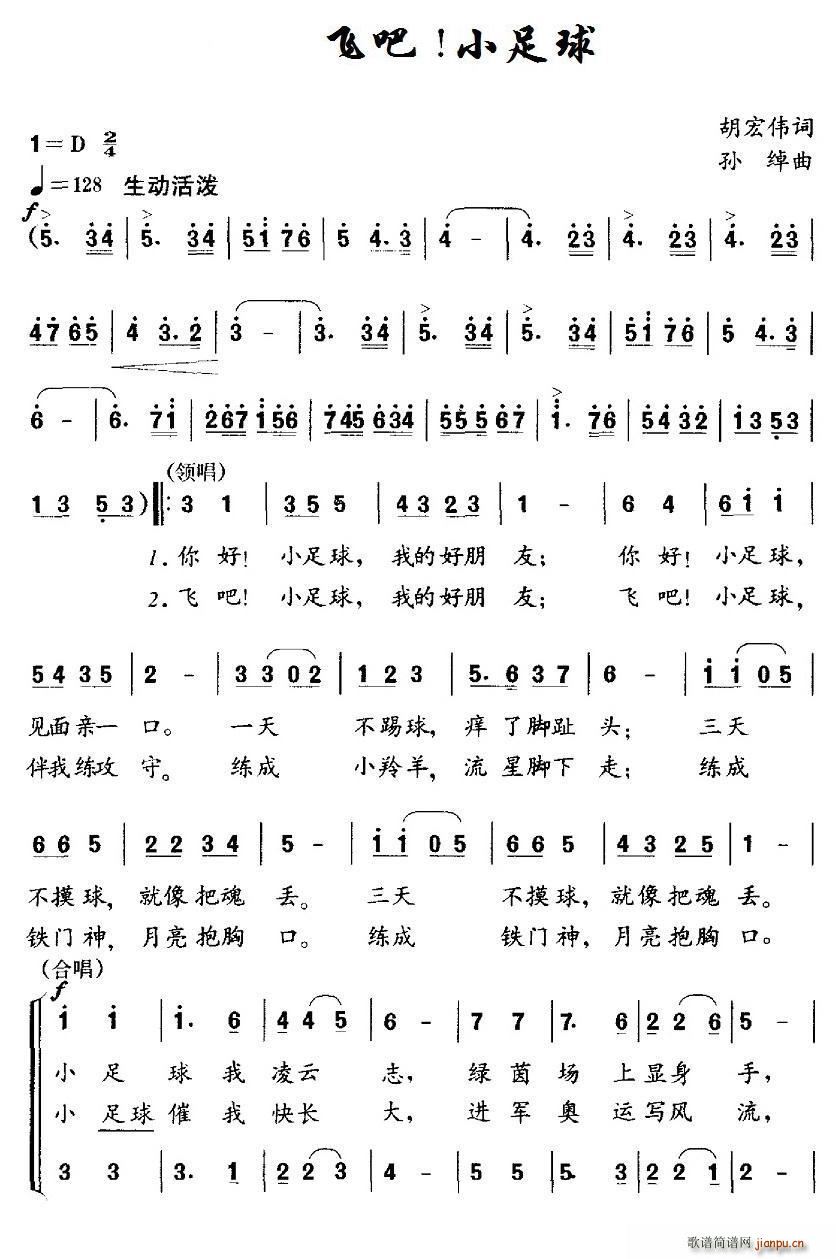 飞吧！小足球
胡宏伟词
1=D 2/4
孙 绰曲
♩=128 生动活泼
f
(5. 34 | 5. 34 | 51 76 | 5 4.3 | 4 - | 4. 23 | 4. 23 | 4. 23 |
47 65 | 4 3.2 | 3 - | 3. 34 | 5. 34 | 5. 34 | 51 76 | 5 4.3 |
6 - | 6. 71 | 267 156 | 745 634 | 555 567 | 1. 76 | 54 32 | 13 53 |
(领唱)
13 53) ‖: 3 1 | 35 5 | 43 23 | 1 - | 6 4 | 61 1 |
1. 你 好! 小足球, 我的好朋 友; 你 好! 小足球,
2. 飞 吧! 小足球, 我的好朋 友; 飞 吧! 小足球,
54 35 | 2 - | 33 02 | 12 3 | 5. 6 37 | 6 - | 11 05 |
见面亲一 口。 一天 不踢球, 痒了脚趾 头; 三天
伴我练攻 守。 练成 小羚羊, 流星脚下 走; 练成
66 5 | 22 34 | 5 - | 11 05 | 66 5 | 43 25 | 1 - |
不摸球, 就像把魂 丢。 三天 不摸球, 就像把魂 丢。
铁门神, 月亮抱胸 口。 练成 铁门神, 月亮抱胸 口。
(合唱)
f
1 1 | 1. 6 | 44 45 | 6 - | 7 7 | 7. 6 | 22 26 | 5 - |
小 足 球 我 凌云 志, 绿 茵 场 上 显身 手,
小 足球 催 我 快长 大, 进 军 奥 运 写风 流,
3 3 | 3. 1 | 22 23 | 4 - | 5 5 | 5. 3 | 22 21 | 2 - |
歌谱简谱网
jianpu.cn